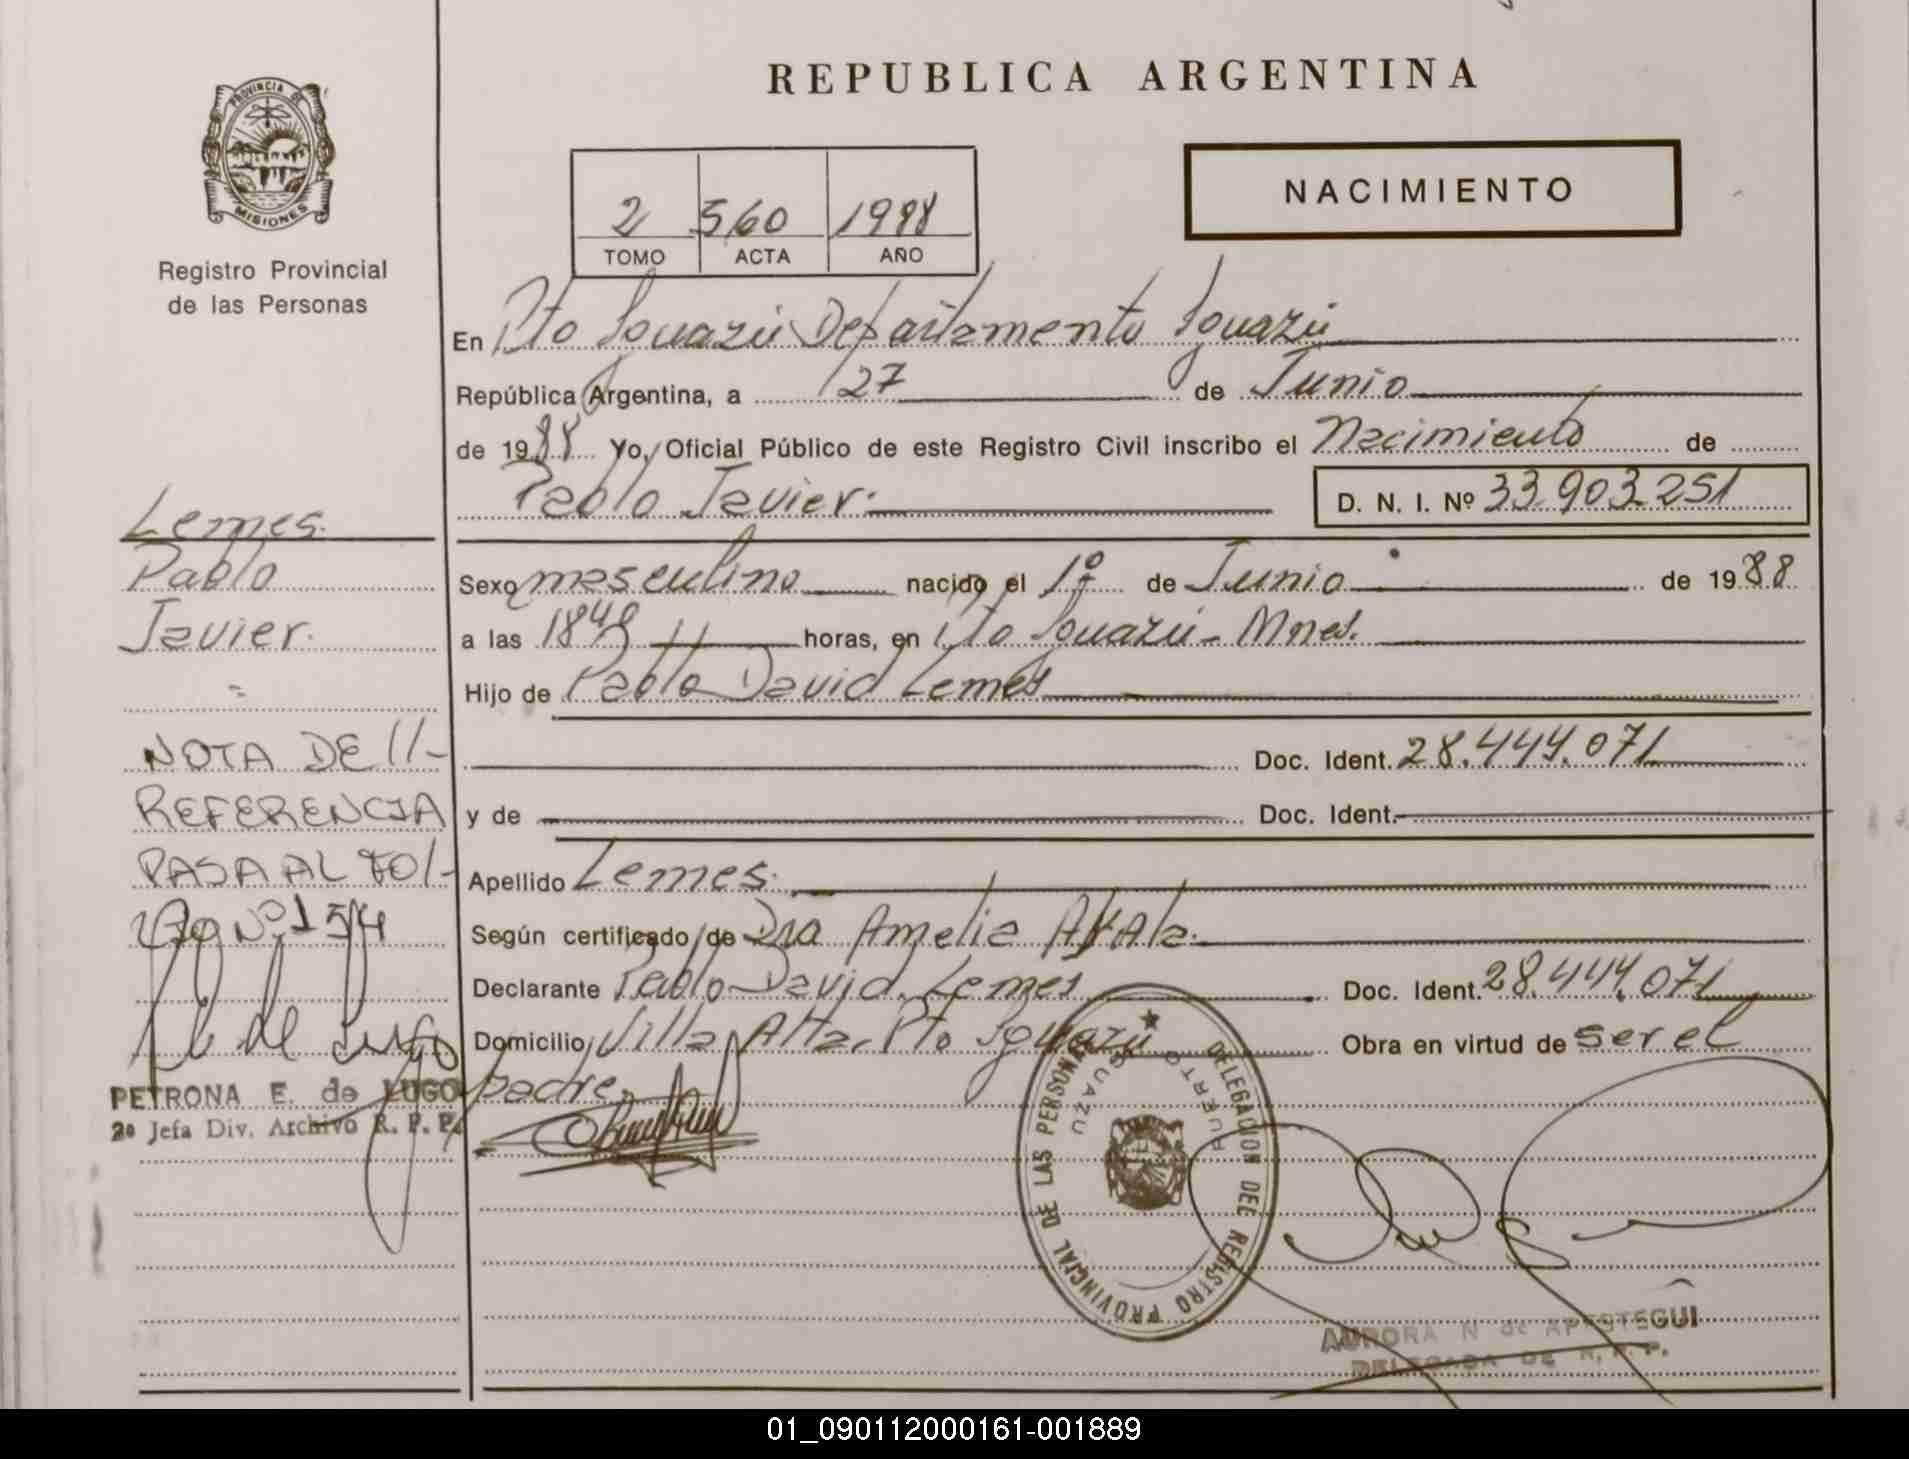 REPUBLICA ARGENTINA
PROVINCIA DE
MISIONES
Registro Provincial
de las Personas
NACIMIENTO
2 560 1988
TOMO ACTA AÑO
En Pto Iguazú Departamento Iguazú
República Argentina, a 27 de Junio
de 1988 Yo, Oficial Público de este Registro Civil inscribo el Nacimiento de
Pablo Javier. D. N. I. Nº 33.903.251
Sexo masculino nacido el 1º de Junio de 1988
a las 18 40 horas, en Pto Iguazú - Mnes.
Hijo de Pablo David Lemes
Doc. Ident. 28.444.071
y de Doc. Ident.
Apellido Lemes.
Según certificado de Dra Amelia Ayala.
Declarante Pablo David Lemes Doc. Ident. 28.444.071
Domicilio Villa Alta. Pto Iguazú Obra en virtud de ser el
padre.
Lemes.
Pablo
Javier.
NOTA DE //-
REFERENCIA
PASA AL FO/-
LIO Nº 154
PETRONA E. de LUGO
2ª Jefa Div. Archivo R. P. P.
DELEGACION DEL REGISTRO PROVINCIAL DE LAS PERSONAS
PUERTO IGUAZU
AURORA N de APESTEGUI
DELEGADA DE R. P. P.
01_090112000161-001889